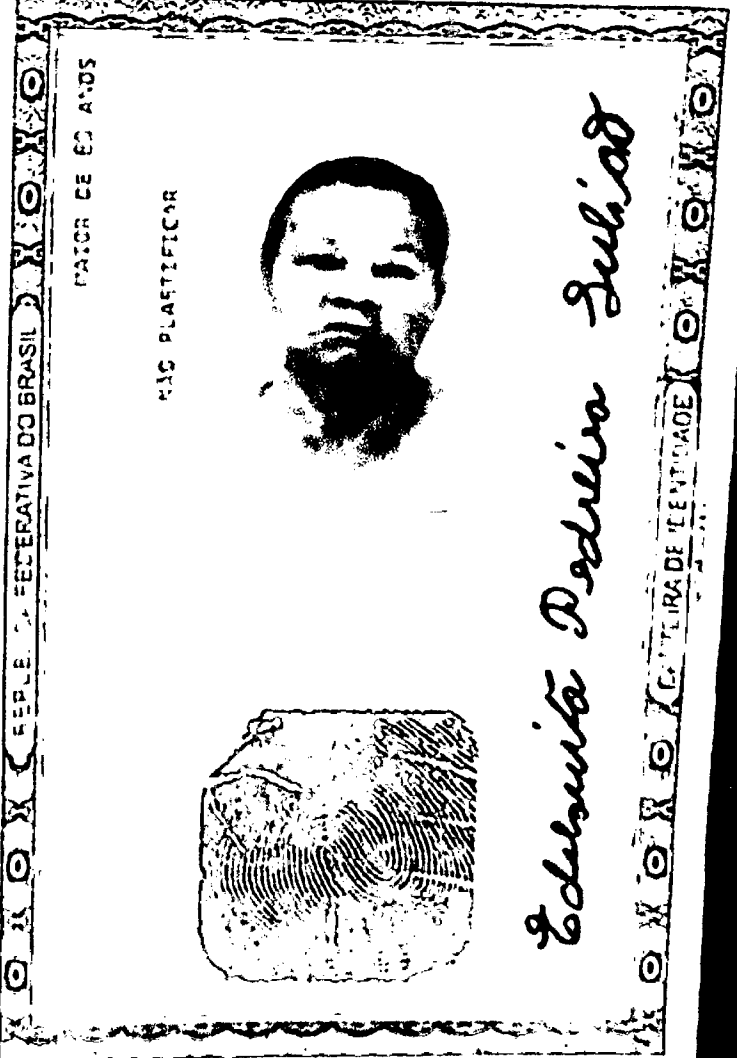 REPÚBLICA FEDERATIVA DO BRASIL
MAIOR DE 60 ANOS
NÃO PLASTIFICAR
Pedreira
CARTEIRA DE IDENTIDADE